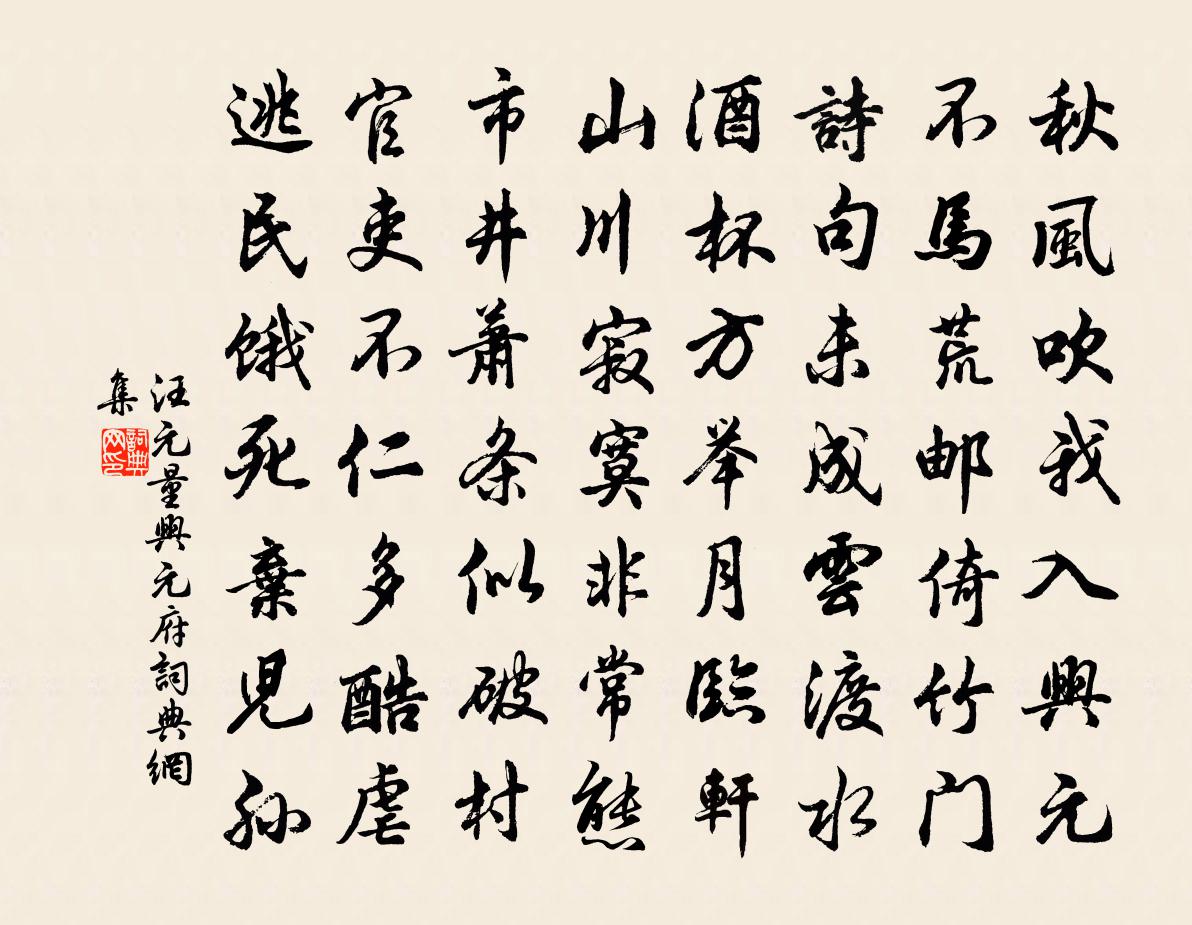 秋風吹我入興元
不馬荒邮倚竹门
詩句未成雲渡水
酒杯方举月臨軒
山川寂寞非常態
市井蕭条似破村
官吏不仁多酷虐
逃民餓死棄児孫
汪元量興元府詞典網
集
詞典网印